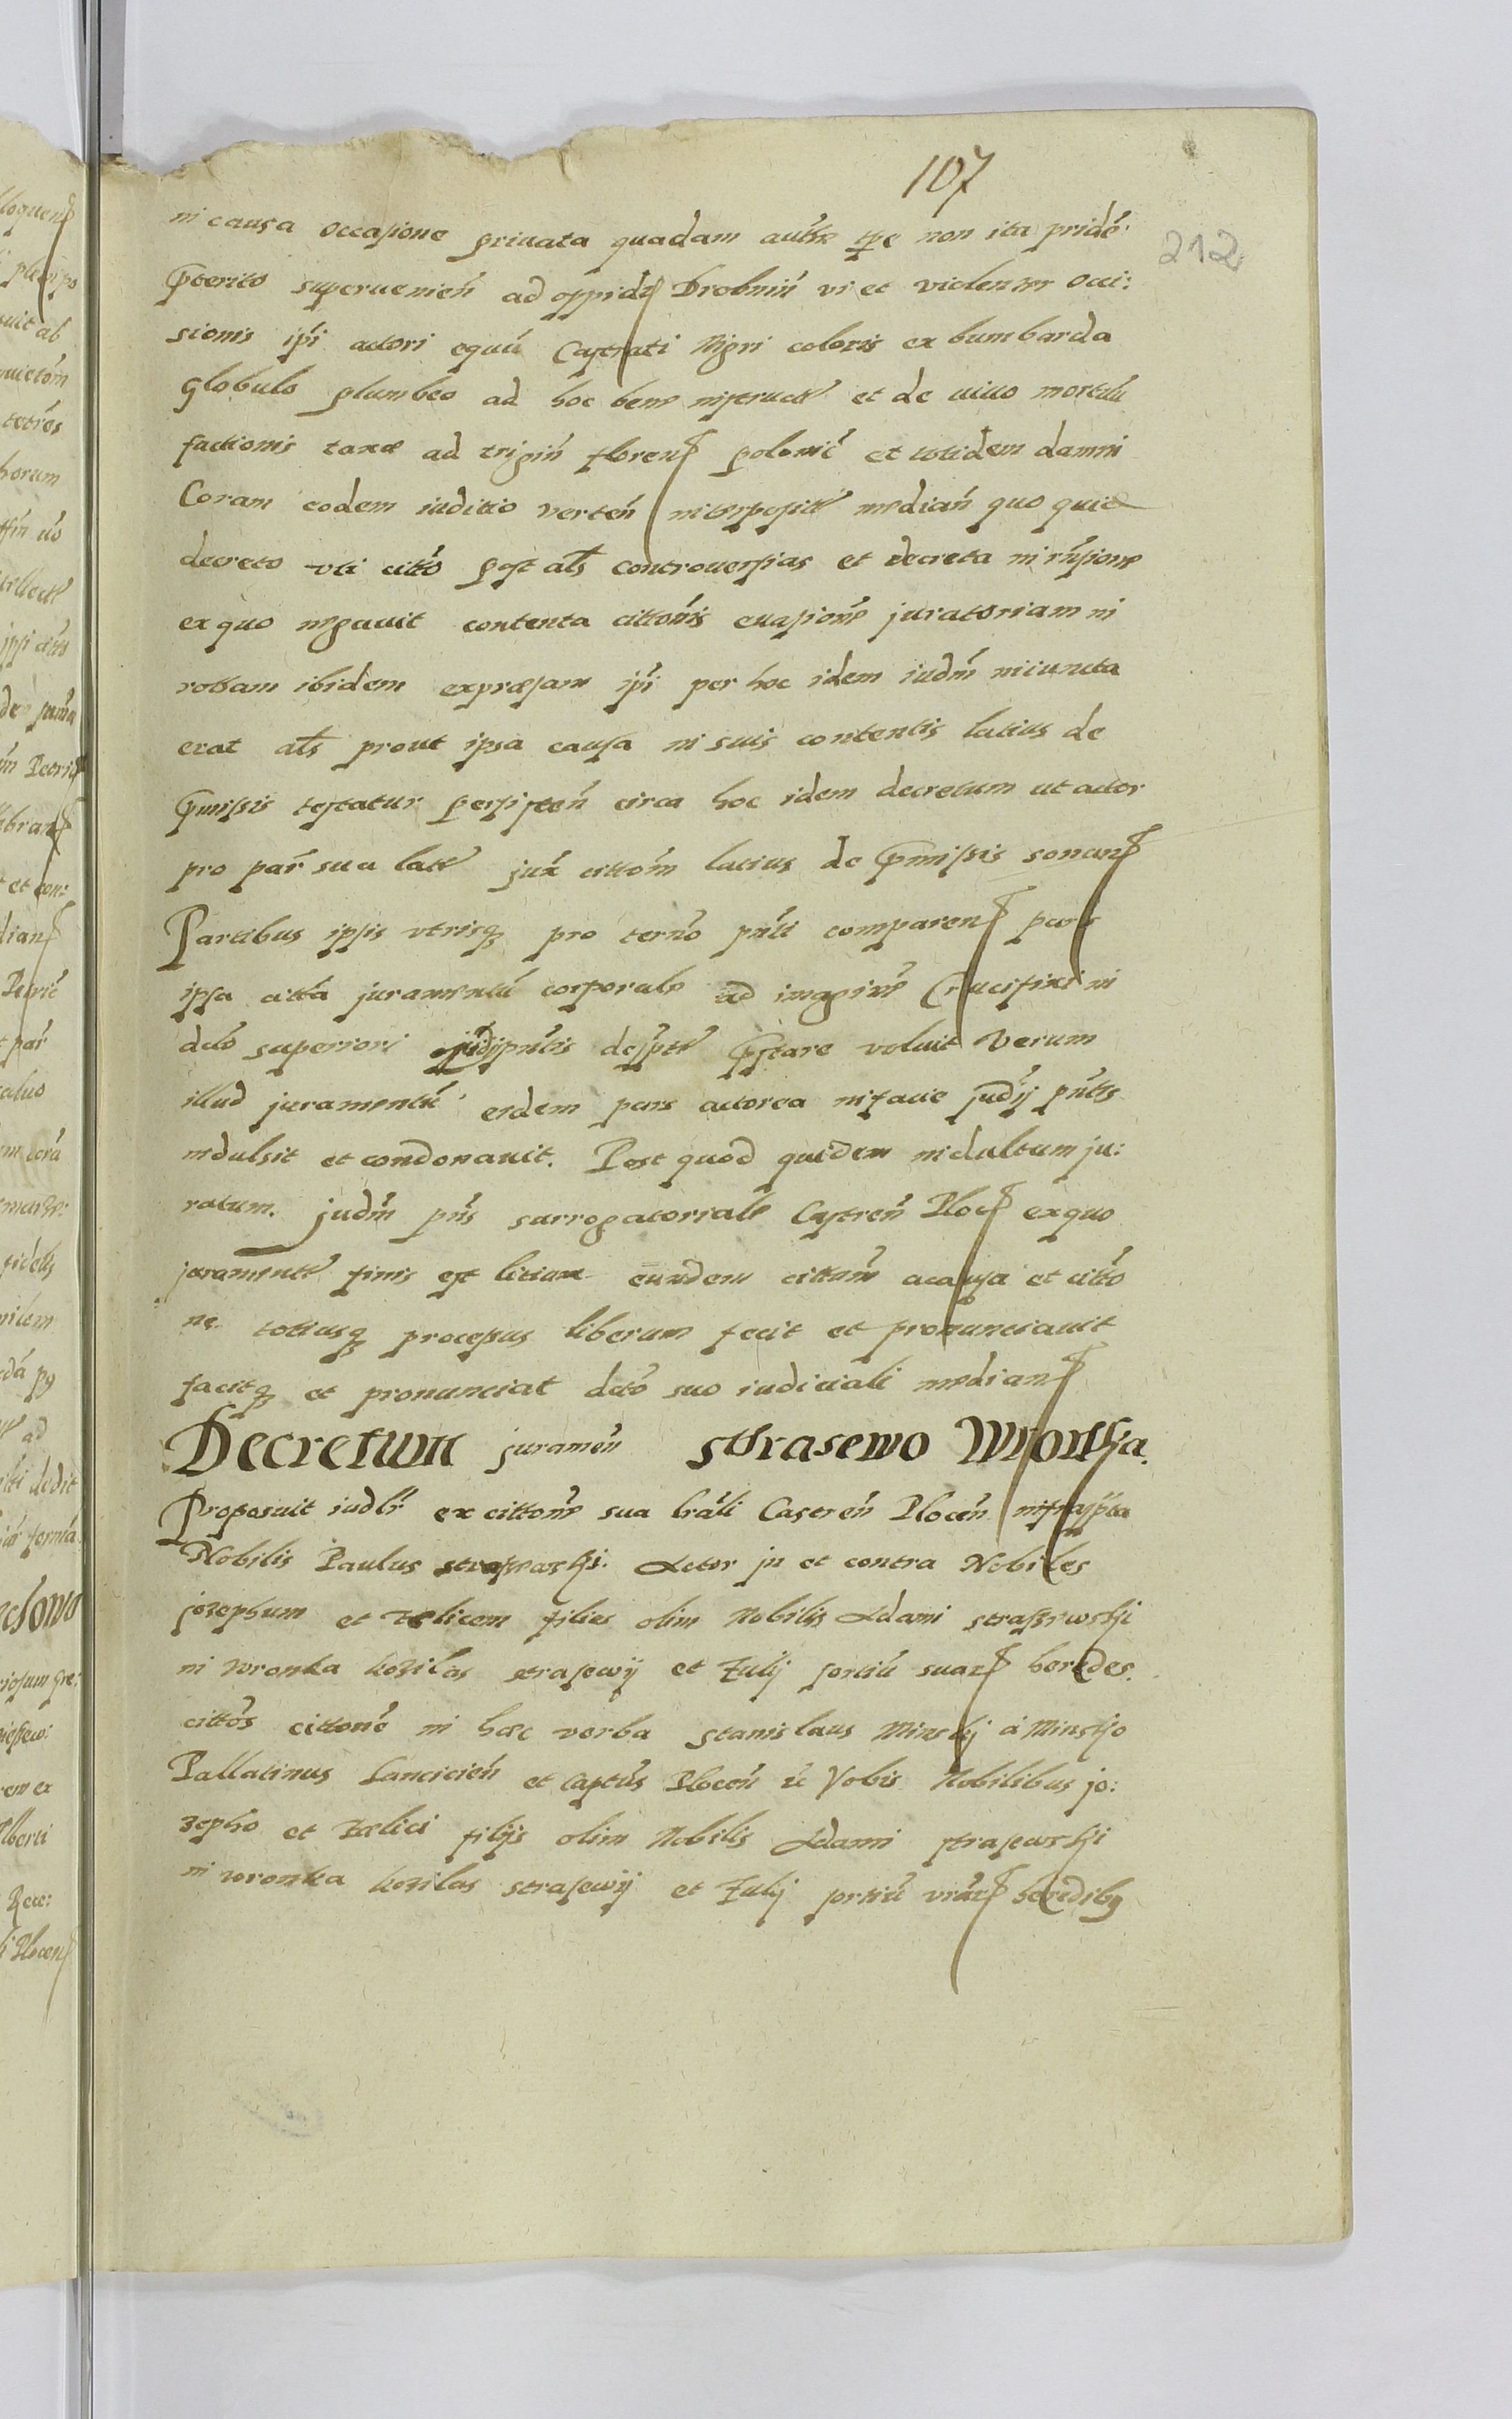 107
212
in causa occasione privata quadam autħr tp̃e non ita pridẽ
p̃terito supervenieñ ad oppidũ Drobniñ vi et violenter occi:
sionis ip̃i actori equũ Castrati Nigri coloris ex bumbarda
globulo plumbeo ad hoc bene instructũ et de vivo mortuũ
factionis taxæ ad trigiñ floren polonic̃ et totidem damni
Coram eodem iuditio verteñ interpositũ mediañ quo quid
decreto uti citto post als controversias et decreta in rñsione
ex quo negavit contenta cittoñis evasione juratoriam in
rottam ibidem expræssam ip̃i per hoc idem iudm̃ iniuncta
erat als prout ipsa causa in suis contentis latius de
p̃missis testatur persisteñ circa hoc idem decretum ut actor
pro par̃ sua latũ jux̃ cittom̃ latius de p̃missis sonan
Partibus ipsis utrisq pro terno pñti comparen pars
ipsa citta juramentũ corporale ad imagine Crucifixi in
dcto superiori judy pñtis desptũ p̃stare voluit Verum
illud juramentũ eidem pars actorea in facie judij pñtis
indulsit et condonavit. Post quod quidem indultum ju:
ratum. judm̃ pñs surrogatoriale Castreñ Ploc ex quo
juramentũ finis est litium eundem cittum̃ a causa et citto
ne totiusq processus liberum fecit et pronunciavit
facitq et pronunciat dcto suo iudiciali median
Decretum jurameñ Sthrasewo Wronska.
Proposuit iudlr̃ ex cittone sua lrãli Castreñ Ploceñ infrasp̃ta
Nobilis Paulus strasewski. Actor in et contra Nobiles
jozephum et Fælicem filios olim Nobilis Adami strassewski
in wronka kozilas strasewij et Zulij sortiũ suar heredes.
cittõs cittonẽ in hæc verba Stanislaus Minskij à Minsko
Pallatinus Lancicieñ et Captũs Ploceñ &c Vobis Nobilibus jo:
zepho et Fælici filijs olim Nobilis Adami strasewski
in wronka kozilas strasewij et Zulij sortiũ vrãr heredibq